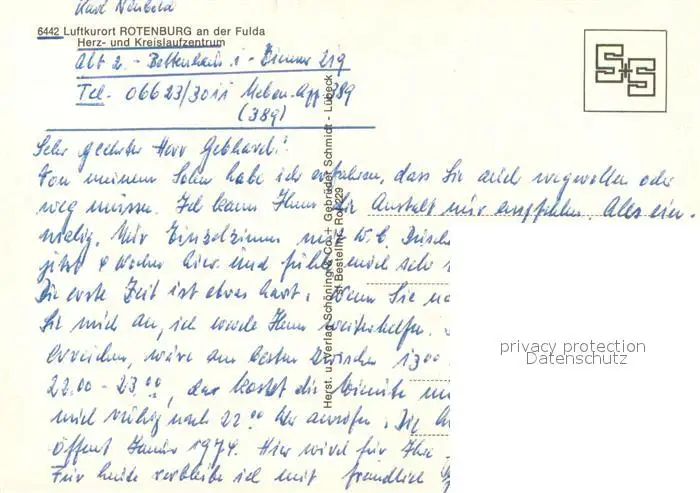 Karl
6442 Luftkurort ROTENBURG an der Fulda
Herz- und Kreislaufzentrum
Abt 2. - Bettenhaus 1 - Zimmer 219
Tel. 06623/3011 Neben-App 389
(389)
S+S
Sehr geehrter Herr Gebhard!
Von meinem Sohn habe ich erfahren, dass Sie auch wegwollen oder
weg müssen. Ich kann Ihnen die Anstalt nur empfehlen. Alles ein-
malig. Nur Einzelzimmer mit W.C. Dusche
jetzt 4 Wochen hier und fühle mich sehr
Die erste Zeit ist etwas hart. Wenn Sie
Sie mich an, ich werde Ihnen weiterhelfen.
erreichen, wäre am besten zwischen 13 00
22.00 - 23.00, das kostet die Minute
mich ruhig nach 22 00 Uhr anrufen. Die
öffent 1974. Hier wird für Ihre
Für heute verbleibe ich mit freundlich
Herst. u. Verlag Schöning & Co + Gebrüder Schmidt - Lübeck
privacy protection
Datenschutz